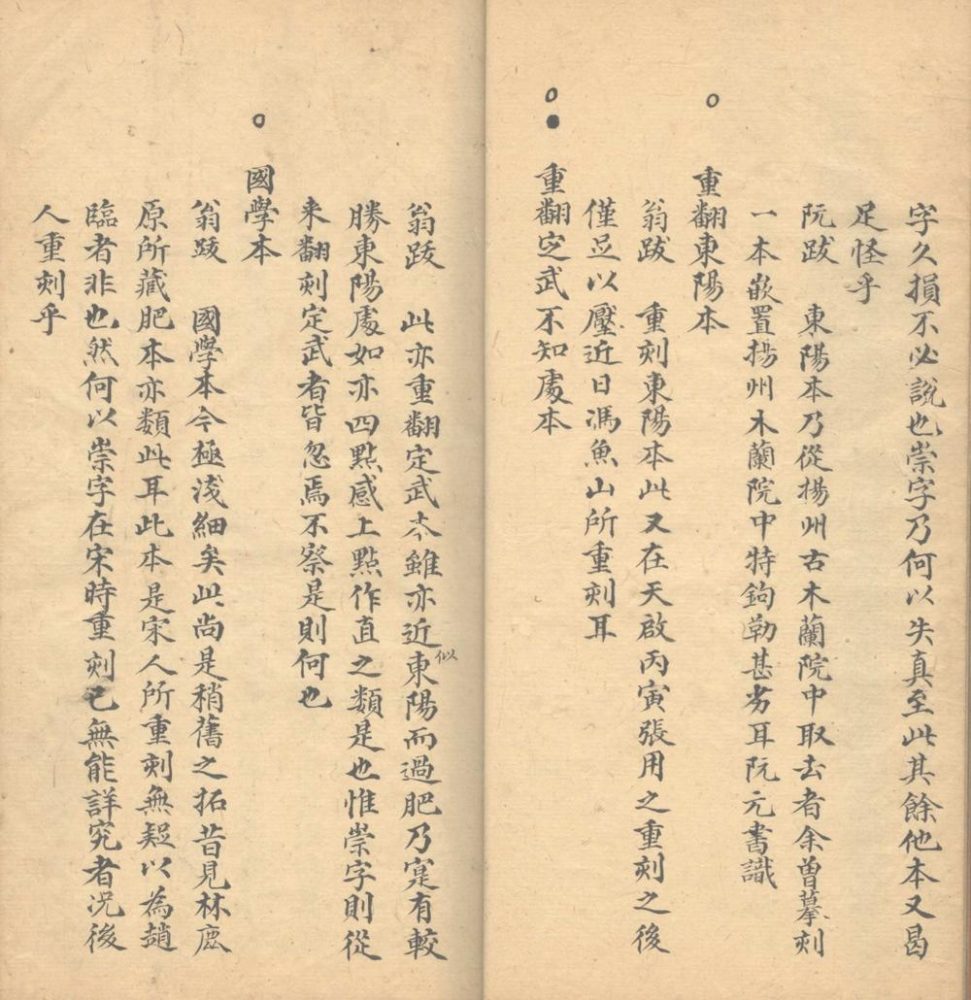 字久損不必說也崇字乃何以失真至此其餘他本又曷
足怪乎
阮跋　東陽本乃從揚州古木蘭院中取去者余曾摹刻
一本嵌置揚州木蘭院中特鉤勒甚劣耳阮元書識
重翻東陽本
翁跋　重刻東陽本此又在天啟丙寅張用之重刻之後
僅足以壓近日馮魚山所重刻耳
重翻定武不知處本
翁跋　此亦重翻定武本雖亦近似東陽而過肥乃寔有較
勝東陽處如亦四點感上點作直之類是也惟崇字則從
来翻刻定武者皆忽焉不察是則何也
國學本
翁跋　國學本今極淺細矣此尚是稍舊之拓昔見林鹿
原所藏肥本亦類此耳此本是宋人所重刻無疑以為趙
臨者非也然何以崇字在宋時重刻已無能詳究者况後
人重刻乎